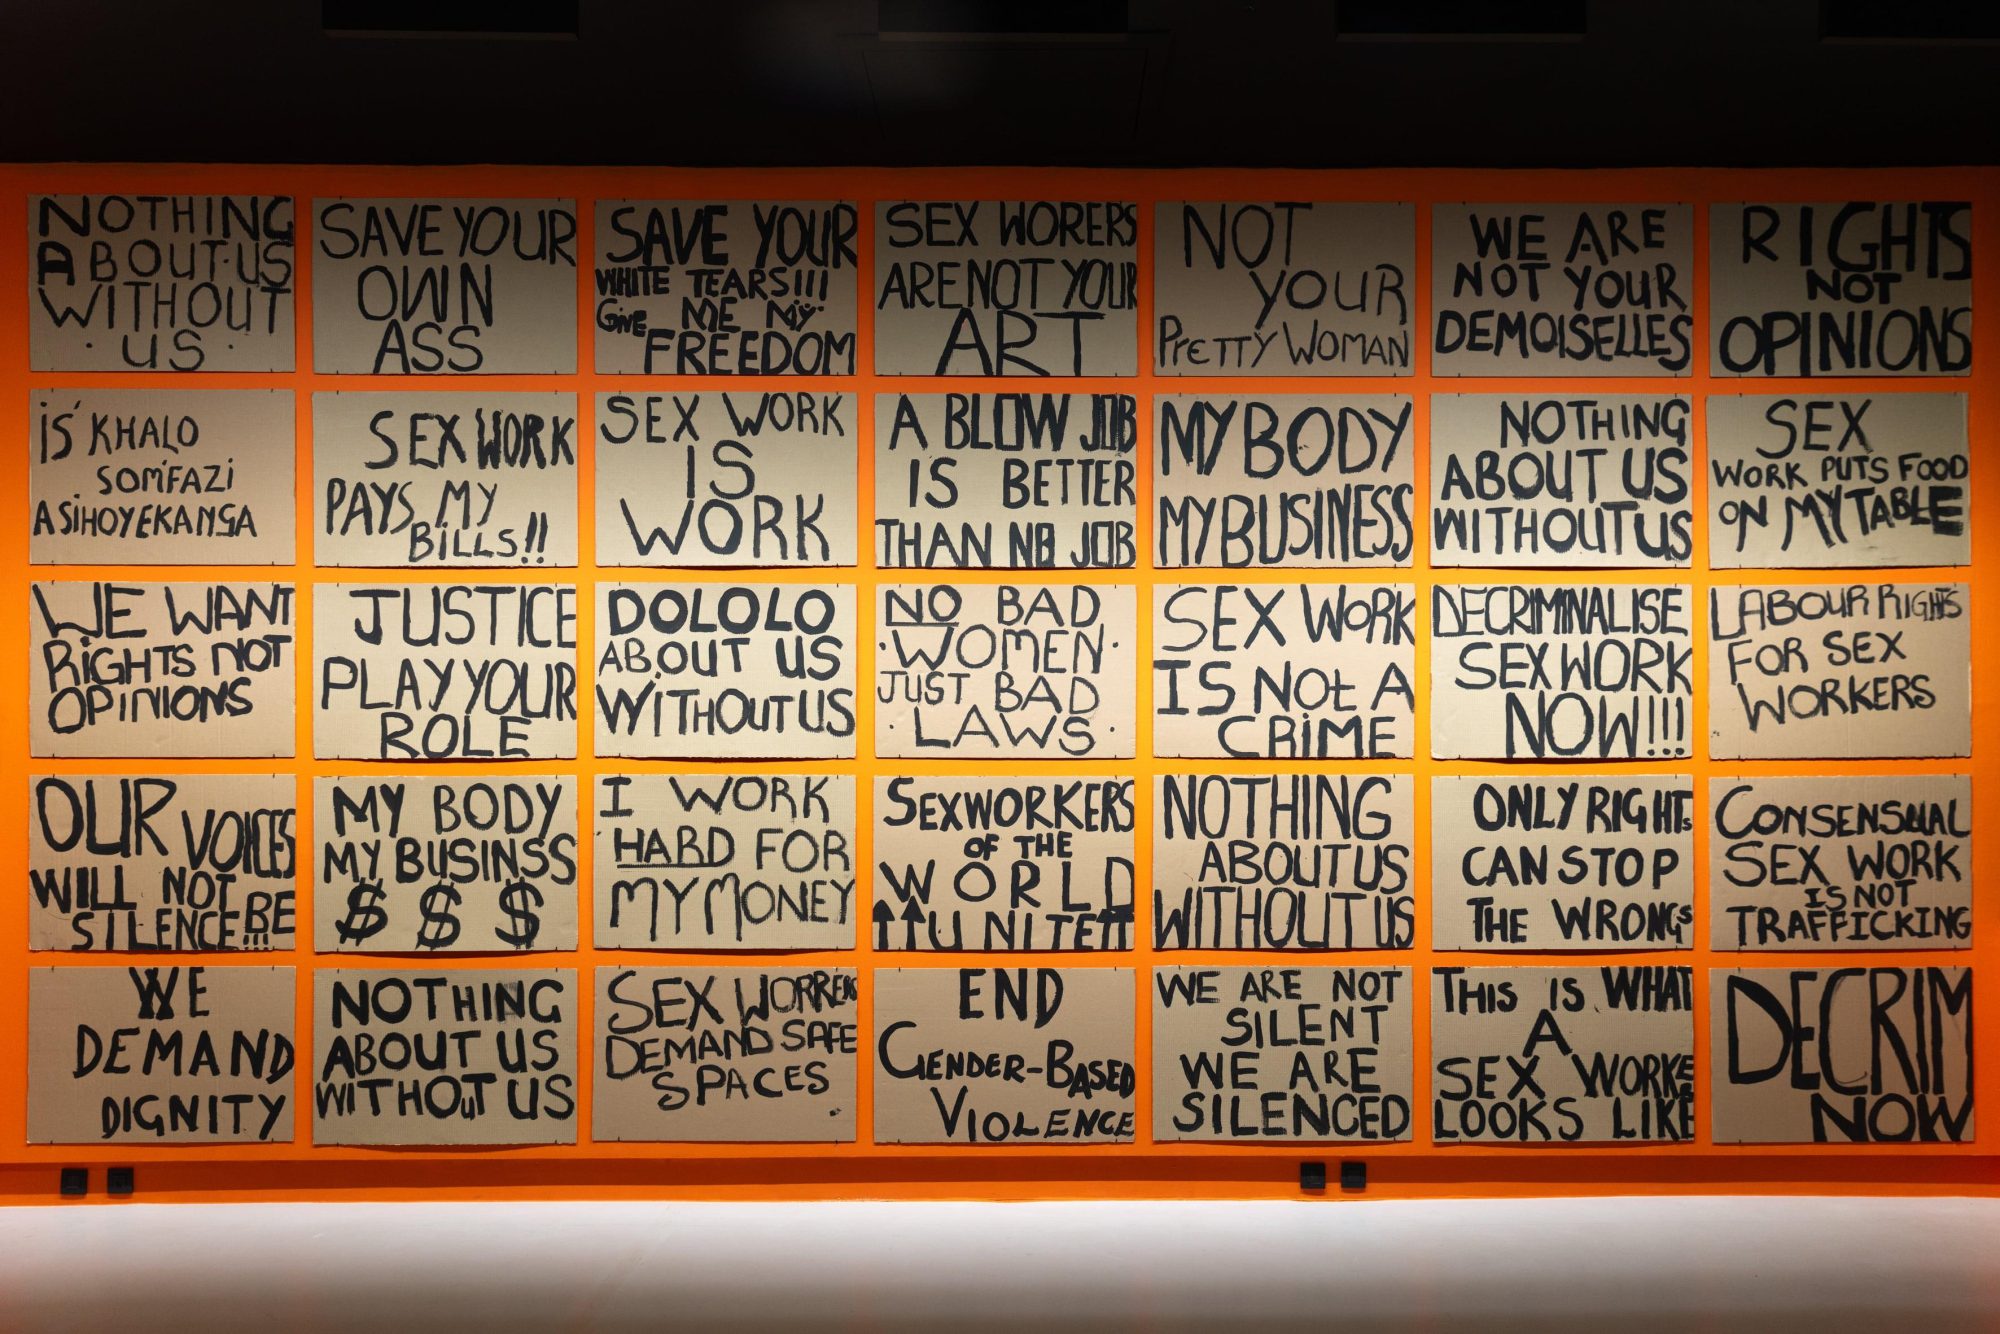 NOTHING
ABOUT US
WITHOUT
US
SAVE YOUR
OWN
ASS
SAVE YOUR
WHITE TEARS!!!
Give ME MY
FREEDOM
SEX WORERS
ARE NOT YOUR
ART
NOT
YOUR
PRETTY WOMAN
WE ARE
NOT YOUR
DEMOISELLES
RIGHTS
NOT
OPINIONS
IS'KHALO
SOM'FAZI
ASIHOYEKANGA
SEX WORK
PAYS MY
BILLS!!
SEX WORK
IS
WORK
A BLOW JOB
IS BETTER
THAN NO JOB
MY BODY
MY BUSINESS
NOTHING
ABOUT US
WITHOUT US
SEX
WORK PUTS FOOD
ON MY TABLE
WE WANT
RIGHTS NOT
OPINIONS
JUSTICE
PLAY YOUR
ROLE
DOLOLO
ABOUT US
WITHOUT US
NO BAD
·WOMEN·
JUST BAD
·LAWS·
SEX WORK
IS NOt A
CRiME
DECRIMINALISE
SEX WORK
NOW!!!
LABOUR RIGHTS
FOR SEX
WORKERS
OUR VOICES
WILL NOT BE
SILENCE!!!
MY BODY
MY BUSINSS
$ $ $
I WORK
HARD FOR
MY MONEY
SEXWORKERS
OF THE
WORLD
UNITE
NOTHING
ABOUT US
WITHOUT US
ONLY RIGHTs
CAN STOP
THE WRONGs
CONSENSUAL
SEX WORK
IS NOT
TRAFFICKING
WE
DEMAND
DIGNITY
NOTHING
ABOUT US
WITHOUT US
SEX WORRERS
DEMAND SAFE
SPACES
END
GENDER-BASED
VIOLENCE
WE ARE NOT
SILENT
WE ARE
SILENCED
THIS IS WHAT
A
SEX WORKER
LOOKS LIKE
DECRIM
NOW